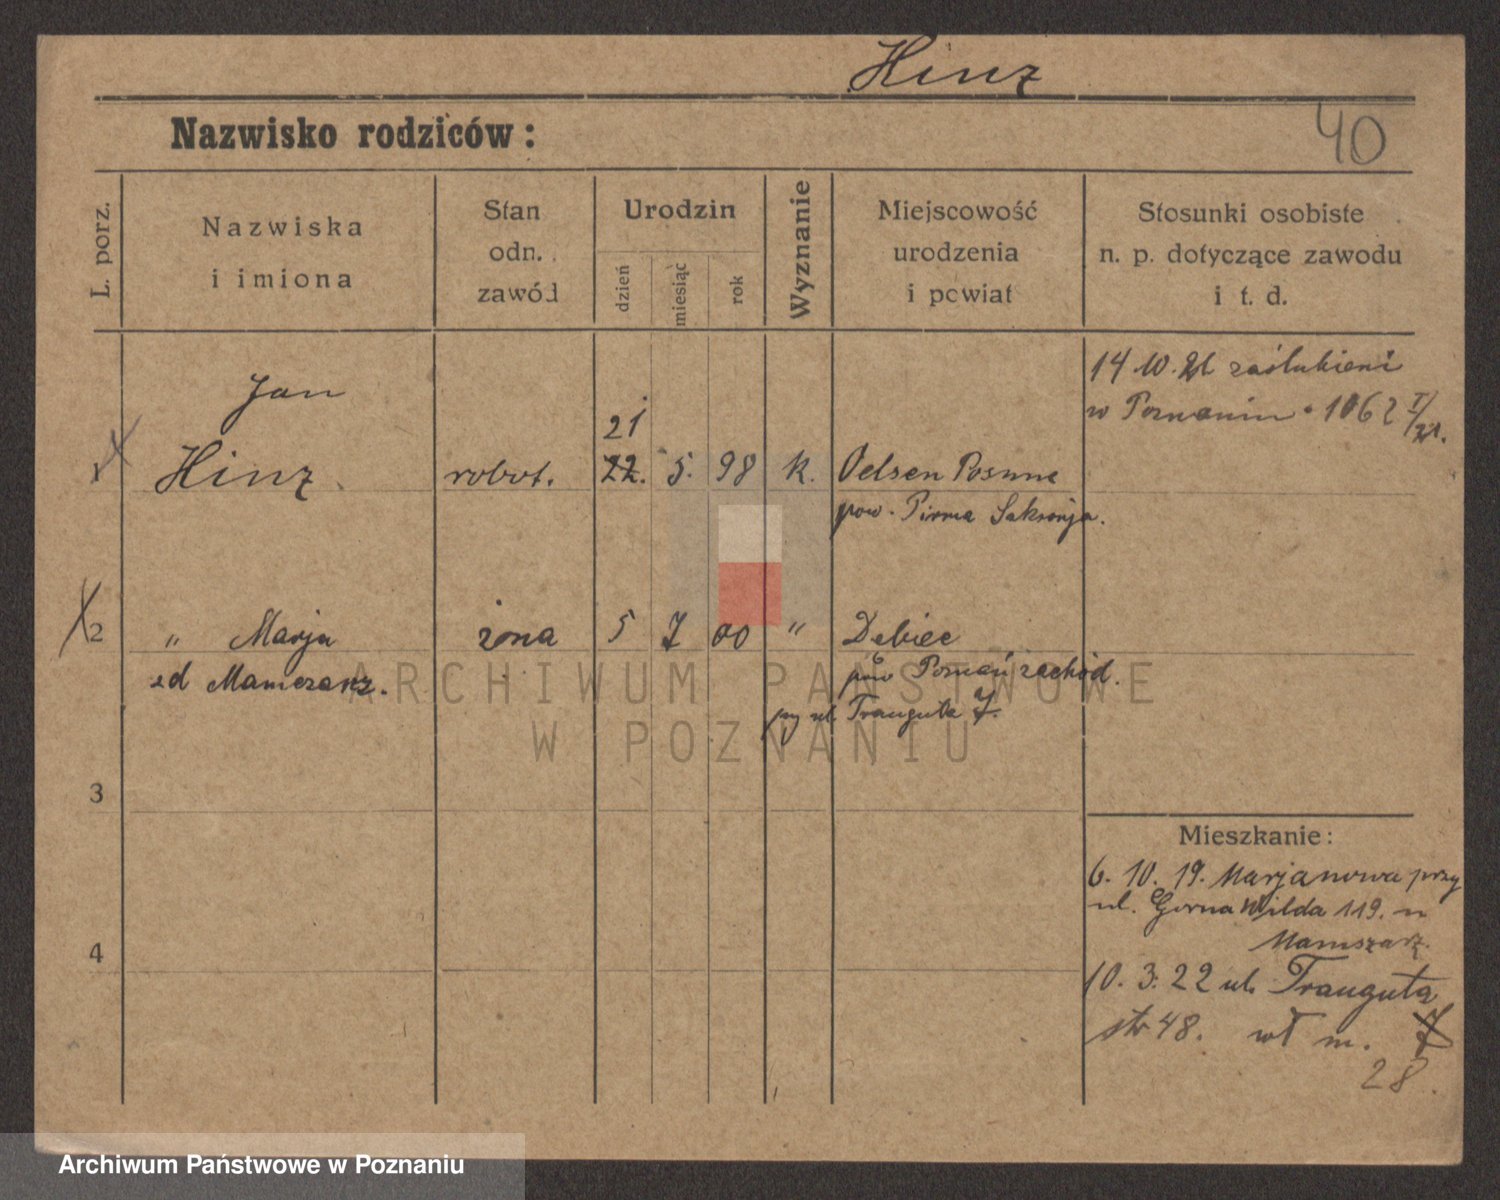 Hinz
40
Nazwisko rodziców:
L. porz.
Nazwiska
i imiona
Stan
odn.
zawód
Urodzin
dzień
miesiąc
rok
Wyznanie
Miejscowość
urodzenia
i powiat
Stosunki osobiste
n. p. dotyczące zawodu
i t. d.
14.10.21 zaślubieni
w Poznaniu 1062 I/21.
Jan
21
1 Hinz robot. 22. 5. 98 k. Oelsen
pow. Pirna Saksonja.
2 " Marja żona 5 7 00 " Dębiec
zd pow Poznań zachód.
przy ul. Trauguta 7.
3
Mieszkanie:
6. 10. 19. Marjanowa przy
ul. Gorna Wilda 119. u
Mamszarz.
4
10. 3. 22 ul. Trauguta
str 48. wł m. 7
28.
ARCHIWUM PAŃSTWOWE
W POZNANIU
Archiwum Państwowe w Poznaniu